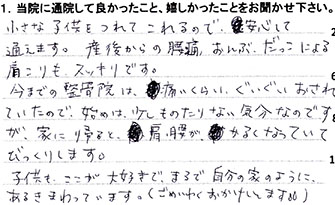 1. 当院に通院して良かったこと、嬉しかったことをお聞かせ下さい。
小さな子供をつれてこれるので、安心して
通えます。産後からの腰痛、おんぶ、だっこによる
肩こりも、スッキリです。
今までの整骨院は、痛いくらい、ぐいぐいおされ
ていたので、始めは、少しものたりない気分なのです
が、家に帰ると、肩、腰が、かるくなっていて
びっくりします。
子供も、ここが大好きで、まるで自分の家のように、
あるきまわっています。(ごめいわくおかけしてます